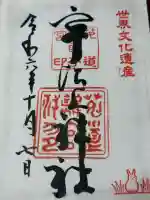 世界文化遺産
宇治上神社
令和六年十月七日